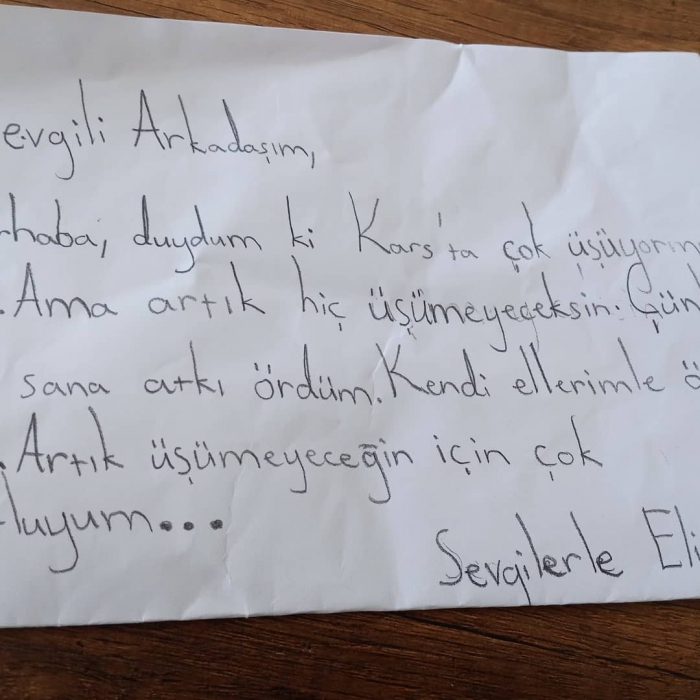 evgili Arkadaşım,
rhaba, duydum ki Kars'ta çok üşüyorm
. Ama artık hiç üşümeyeceksin. Gün
sana atkı ördüm. Kendi ellerimle ö
. Artık üşümeyeceğin için çok
luyum...
Sevgilerle Eli